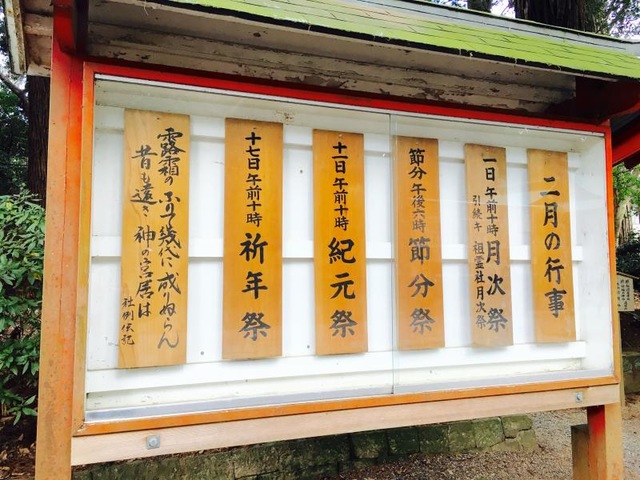 二月の行事
一日 午前十時 月次祭
引続キ 祖霊社月次祭
節分 午後六時 節分祭
十一日 午前十時 紀元祭
十七日 午前十時 祈年祭
露霜の ふりて幾代に 成りぬらん
昔も遠き 神の宮居は